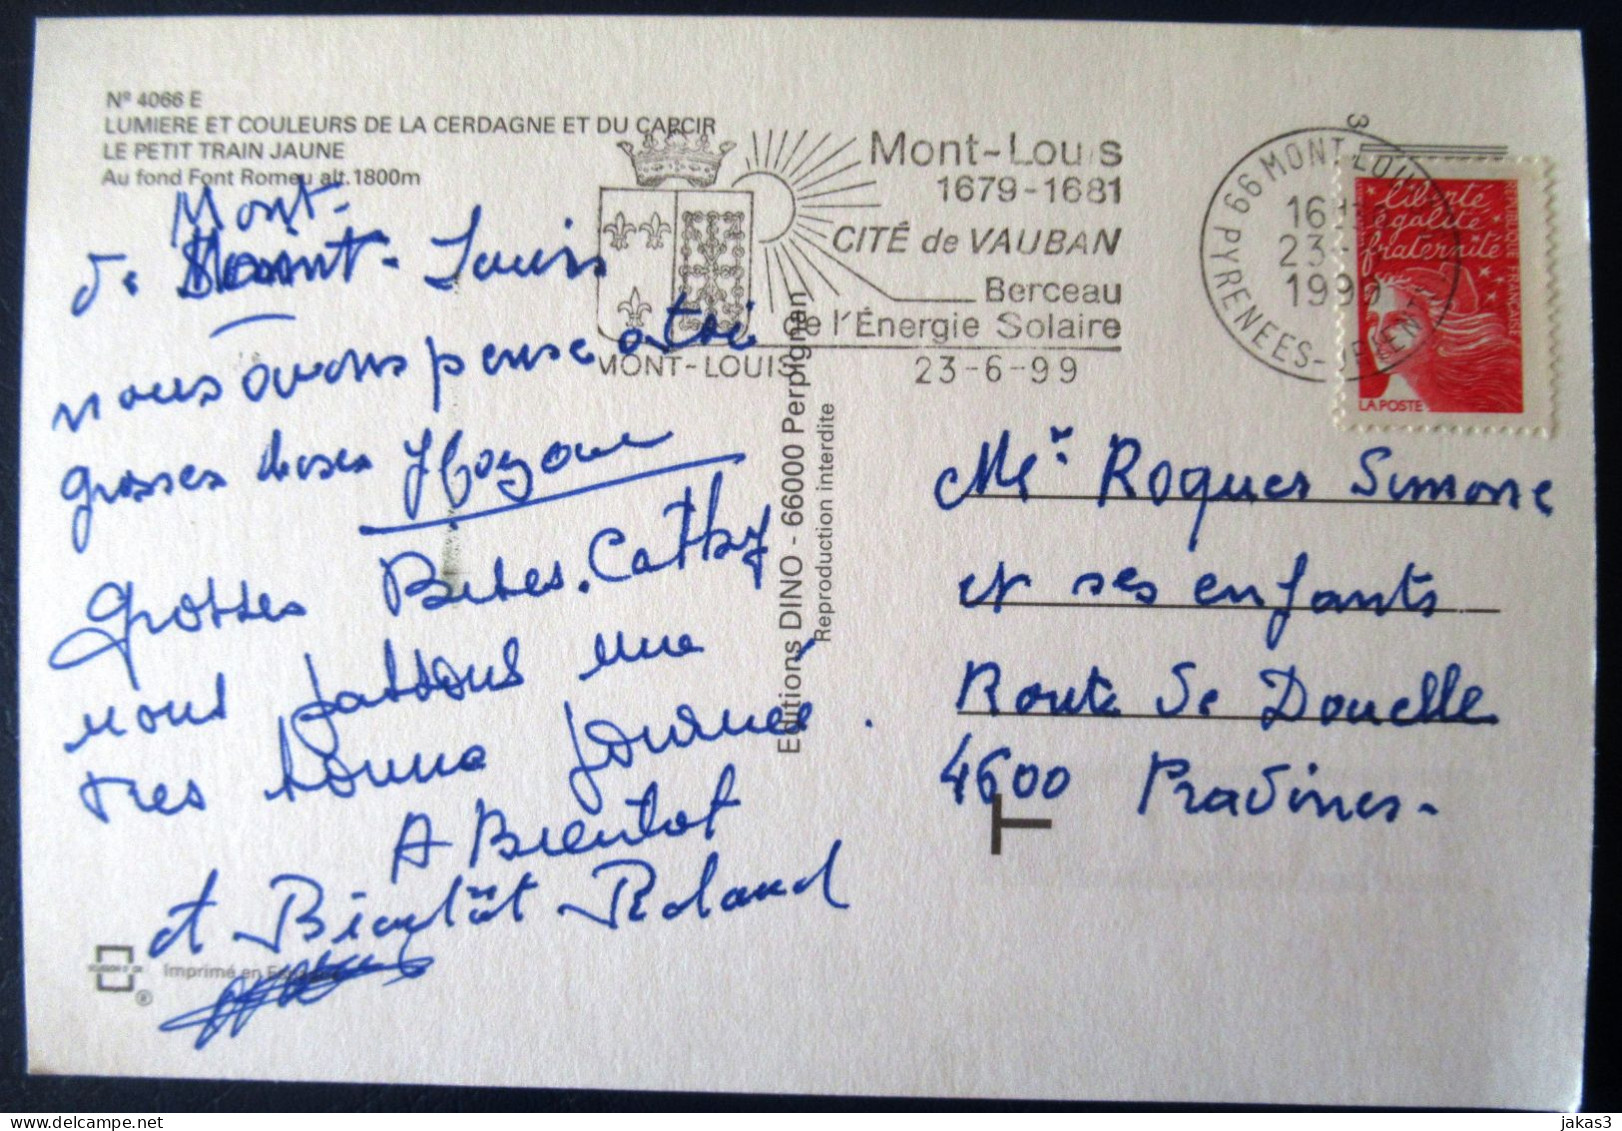 Nº 4066 E
LUMIERE ET COULEURS DE LA CERDAGNE ET DU CAPCIR
LE PETIT TRAIN JAUNE
Au fond Font Romeu alt. 1800m
Mont-
de Mont-Louis
nous avons pensé a toi
grosses bises
grosses Bises. Cathy
nous passons une
tres bonne journée.
A Bientot
et Bientôt Roland
Imprimé en
Editions DINO - 66000 Perpignan
Reproduction interdite
MONT-LOUIS
Mont-Louis
1679-1681
CITÉ de VAUBAN
Berceau
de l'Énergie Solaire
23-6-99
66 MONT LOUIS
PYRENEES-ORIENT
16H
23-
1999
3
liberté
égalité
fraternité
REPUBLIQUE FRANCAISE
LA POSTE
Me Roques Simone
et ses enfants
Route de Douelle
4600 Pradines-
T
jakas3